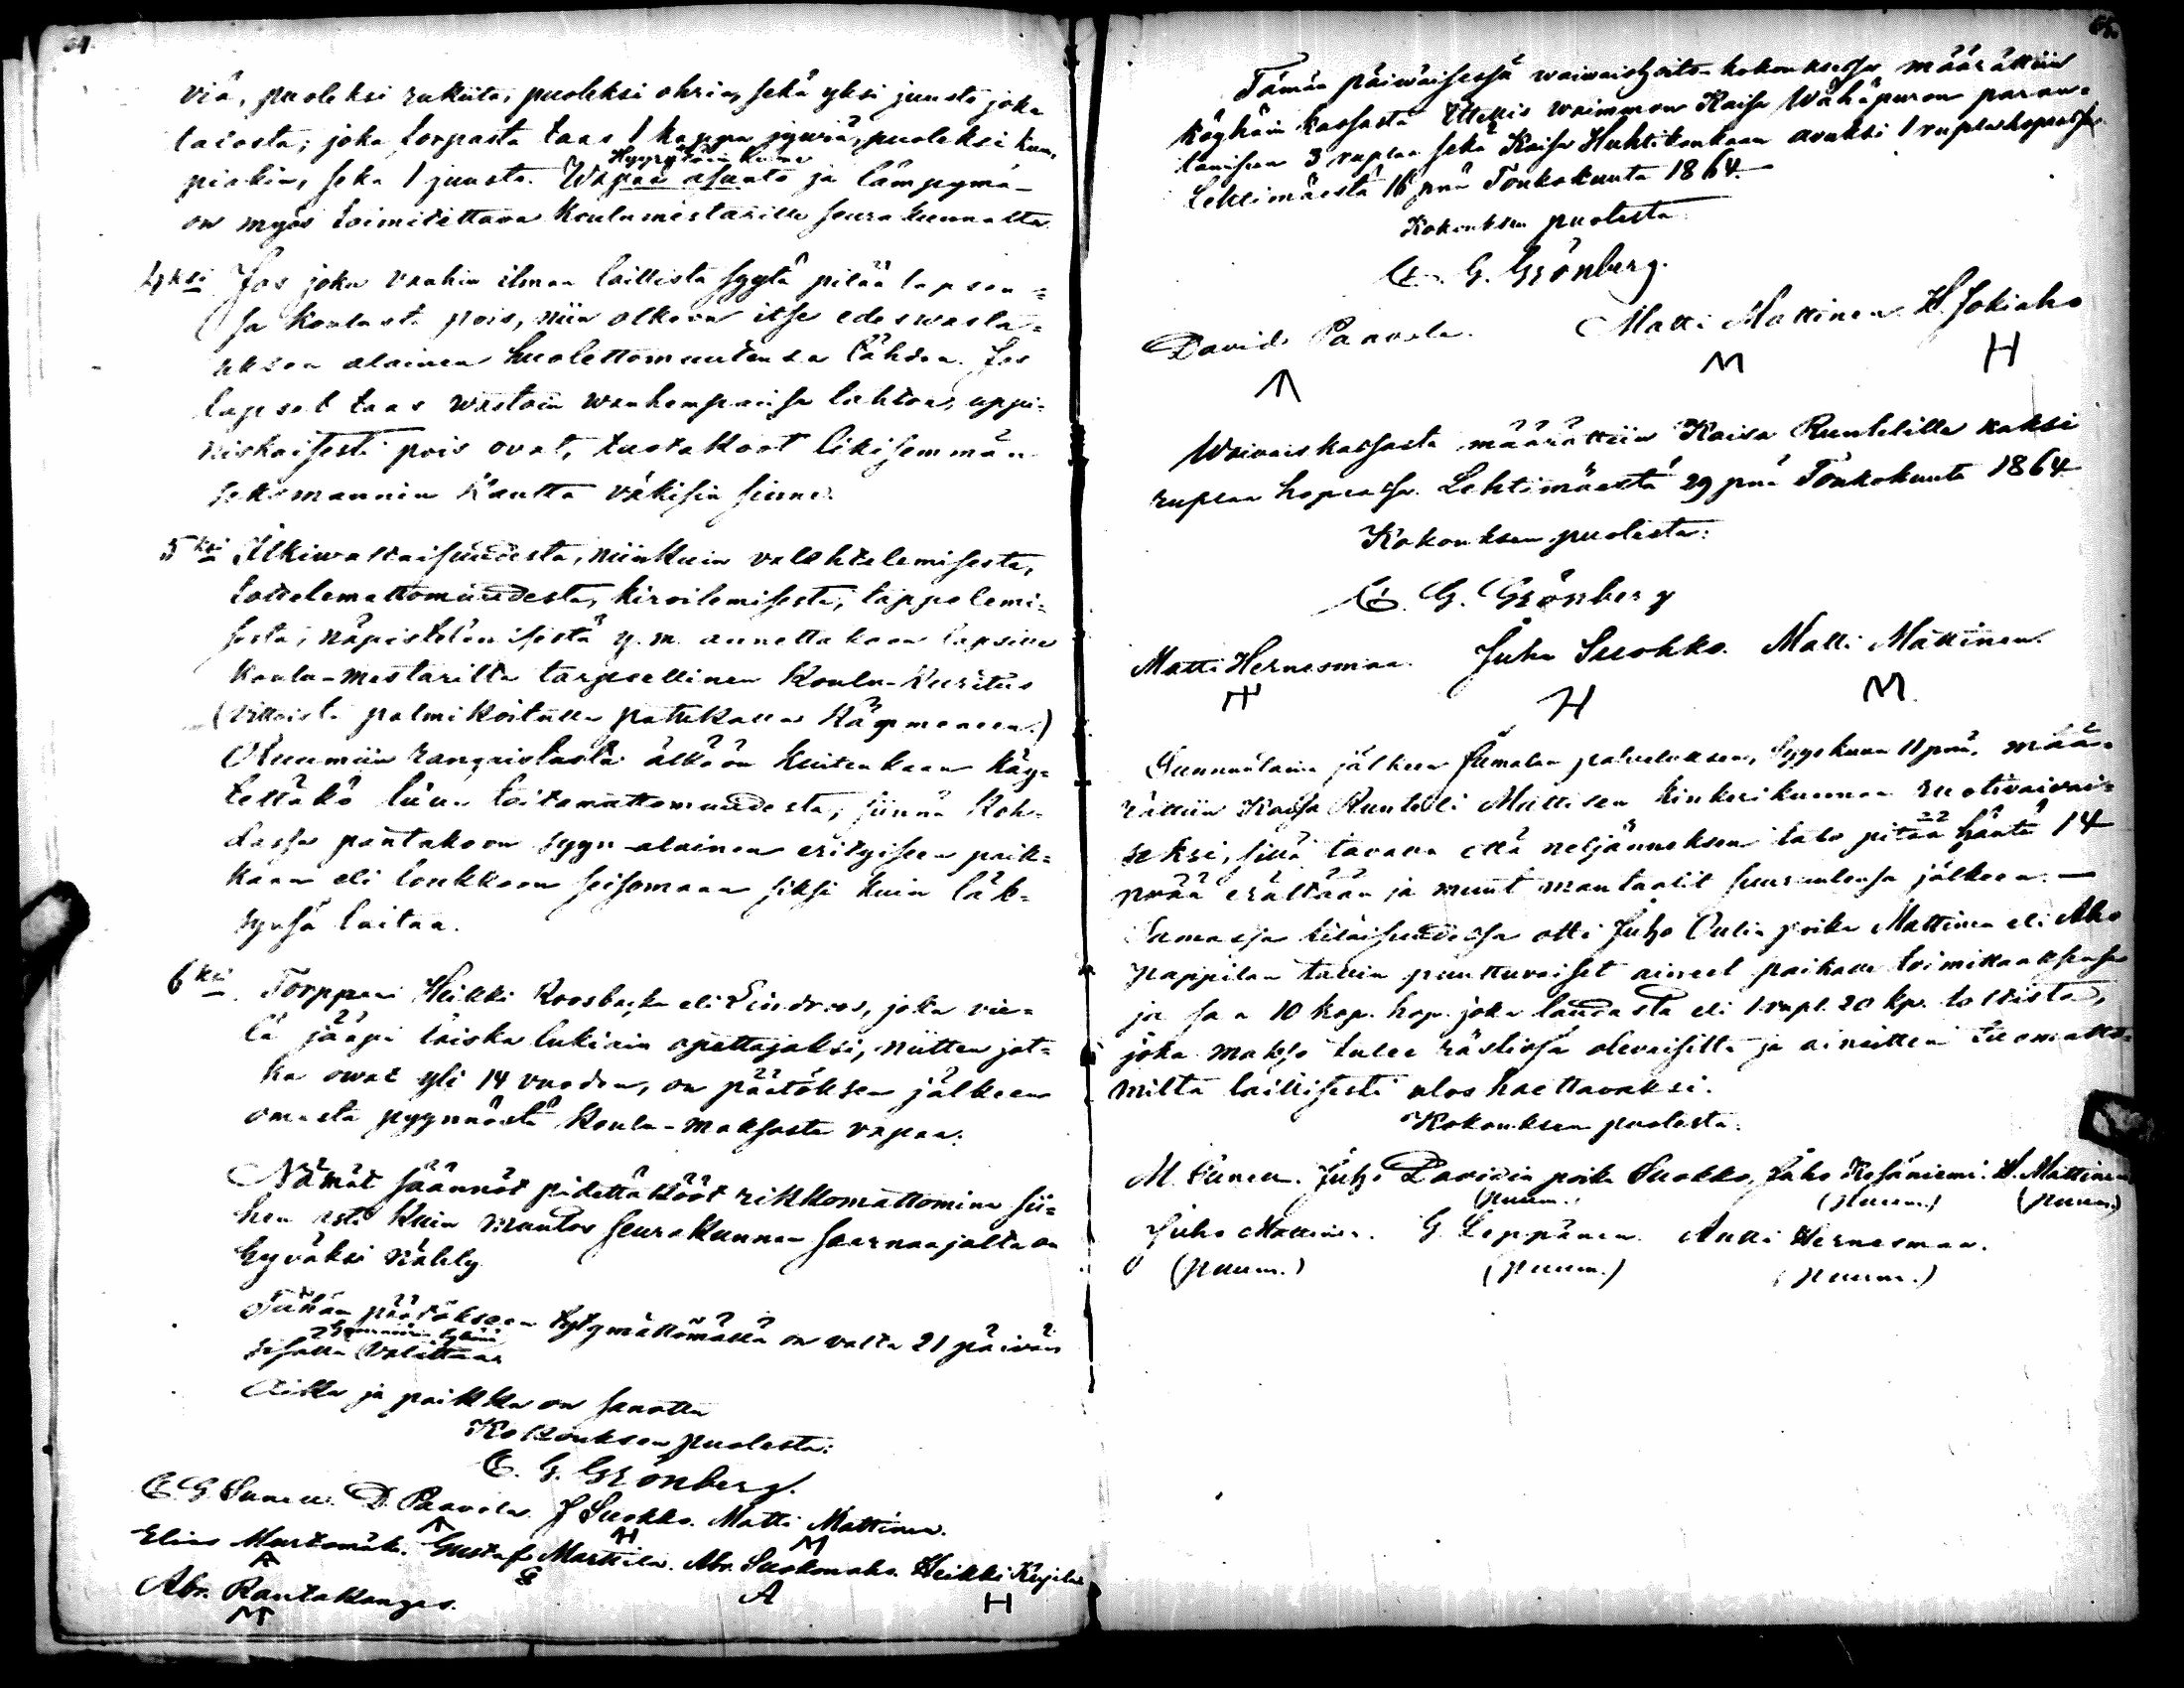 64.
viä, puoleksi rukiita, puoleksi ohria, sekä yksi juusto joka
talosta; joka torpasta taas 1 kappa jywiä, puoleksi kum-
Hyyrytöin kama
piakin, seka 1 juusto. Wapaa asunto ja lämpymä
on myös toimitettava koulumestarille seurakunnalta.
4ksi Jos joku vanhin ilman laillista syytä pitää lapsen=
sa koulusta pois, niin olkoon itse edeswasta=
uksen alainen huolettomuutensa tähden. Jos
lapset taas wastoin wanhempainsa tahtoa, uppi=
niskaisesti pois ovat, tuotakoot likisemmän
seksmannin kautta väkisin sinne.
5ksi Ilkiwaltaisuudesta, niinkuin valehtelemisesta,
tottelemattomuudesta, kiroilemisesta, tappelemi=
sesta, näpistelemisestä y.m. annettakoon lapsille
koulu-mestarilta tarpeellinen koulu-kuritus
(villaista palmikoitulla patukalla kämmeneen.)
Ruumiin rangaistusta älköön kuitenkaan käy=
tettäkö luvun taitamattomuudesta; siinä koh=
dassa pantakoon syyn-alainen erityiseen paik=
kaan eli loukkoon seisomaan siksi kuin läk=
synsä taitaa.
6ksi Torppari Heikki Roosbacka eli Lindroos, joka vie=
lä jääpi toiska lukiain opettajaksi, niitten jot=
ka owat yli 14 vuoden, on päätöksen jälkeen
omasta pyynnöstä koulu-maksosta vapaa.
Nämät säännöt pidettäkööt rikkomattomina sii=
hen asti kuin muutos seurakunnan saarnaajalta on
hyväksi nähty
Tähän päätökseen tytymättömällä on valta 21 päivän
sisällä valittaa
Aika ja paikka on sanottu
Kokouksen puolesta:
C. G. Grönberg.
C. G. Sanell. D. Paavola. J Suokko. Matti Mattinen.
Elias Murtomäki. Gustaf Markila. Abr. Suokonaho. Heikki Kujala
Abr. Rantakangas.
65.
Tämän päiwäisessä waiwaishoiton kokouksessa määrättiin
köyhäin kassasta Ittellis waimmon Kaisa Wähäpuron paran=
tamiseen 3 ruplaa sekä Kaisa Huhtikankaan avuksi 1 rupla hopeassa.
Lehtimäestä 16 pnä Toukokuuta 1864.
Kokouksen puolesta:
C. G. Grönberg.
David Paavola. Matti Mattinen. H. Jokiaho
M H
Waivaiskassasta määrättiin Kaisa Runtelille kaksi
ruplaa hopeassa. Lehtimäestä 29 pnä Toukokuuta 1864
Kokouksen puolesta:
C. G. Grönberg
Matti Hernesmaa. Juha Suokko. Matti Mattinen.
H M
Sunnuntaina jälkeen Jumalan palveluksen, Syyskuun 11 pnä, mää=
rättiin Kaisa Runteli Mattisen kinkerikunnan ruotivaivai=
seksi, sillä tavalla että neljänneksen talo pitää häntä 14
pvää erältään ja muut mantaalit suuruutensa jälkeen. —
Samassa tilaisuudessa otti Juho Oulin poika Mattinen eli Aho
pappilan tallin puuttuvaiset aineet paikalle toimittaaksensa
ja saa 10 kop. hop. joka laudasta eli 1 rupl. 20 kp. toltista,
joka makso tulee rästissä olevaisilta ja aineitten tuomatto=
milta laillisesti ulos haettavaksi.
Kokouksen puolesta:
M. Sanell. Juho Davidin poika Suokko, Juho Kesäniemi. H. Mattinen
(puum.) (puum.) (puum.)
Juho Mattinen. G. Leppänen. Antti Hernesmaa.
(puum.) (puum.) (puum.)